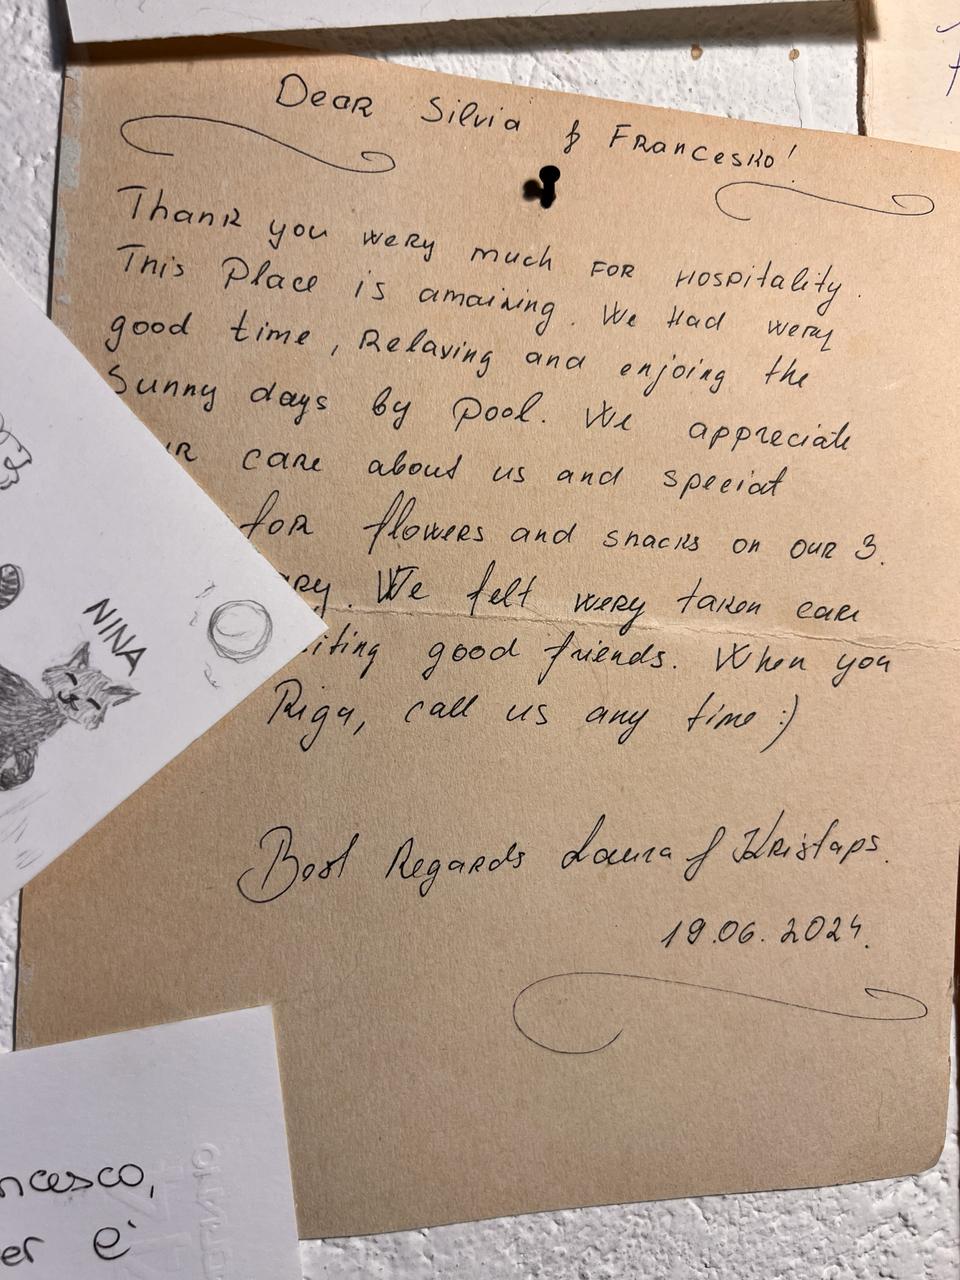 Dear Silvia & Francesko!
Thank you wery much for Hospitality.
This Place is amaining. We Had wery
good time, Relaving and enjoing the
Sunny days by pool. We appreciate
care about us and special
for flowers and snacks on our 3.
We felt wery taken care
good friends. When you
Riga, call us any time :)
Best Regards Laura & Kristaps.
19.06.2024.
NINA
ncesco,
er è